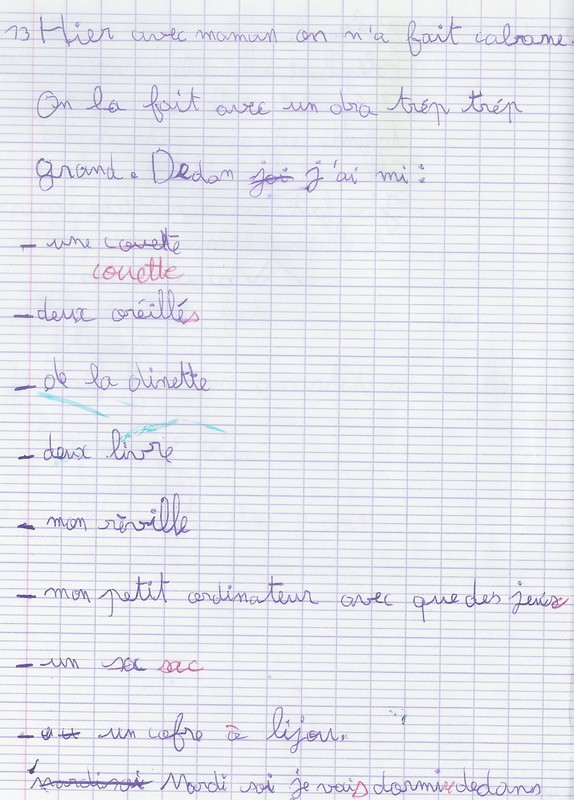 13 Hier avec maman on n'a fait cabane.
On la fait avec un dra trép trép
grand. Dedan j'ai mi :
- une couette
couette
- deux oréillés
- de la dinette
- deux livre
- mon réville
- mon petit ordinateur avec que des jeux
- un sac
- un cofre à bijou.
Mardi soi je vais dormir dedans